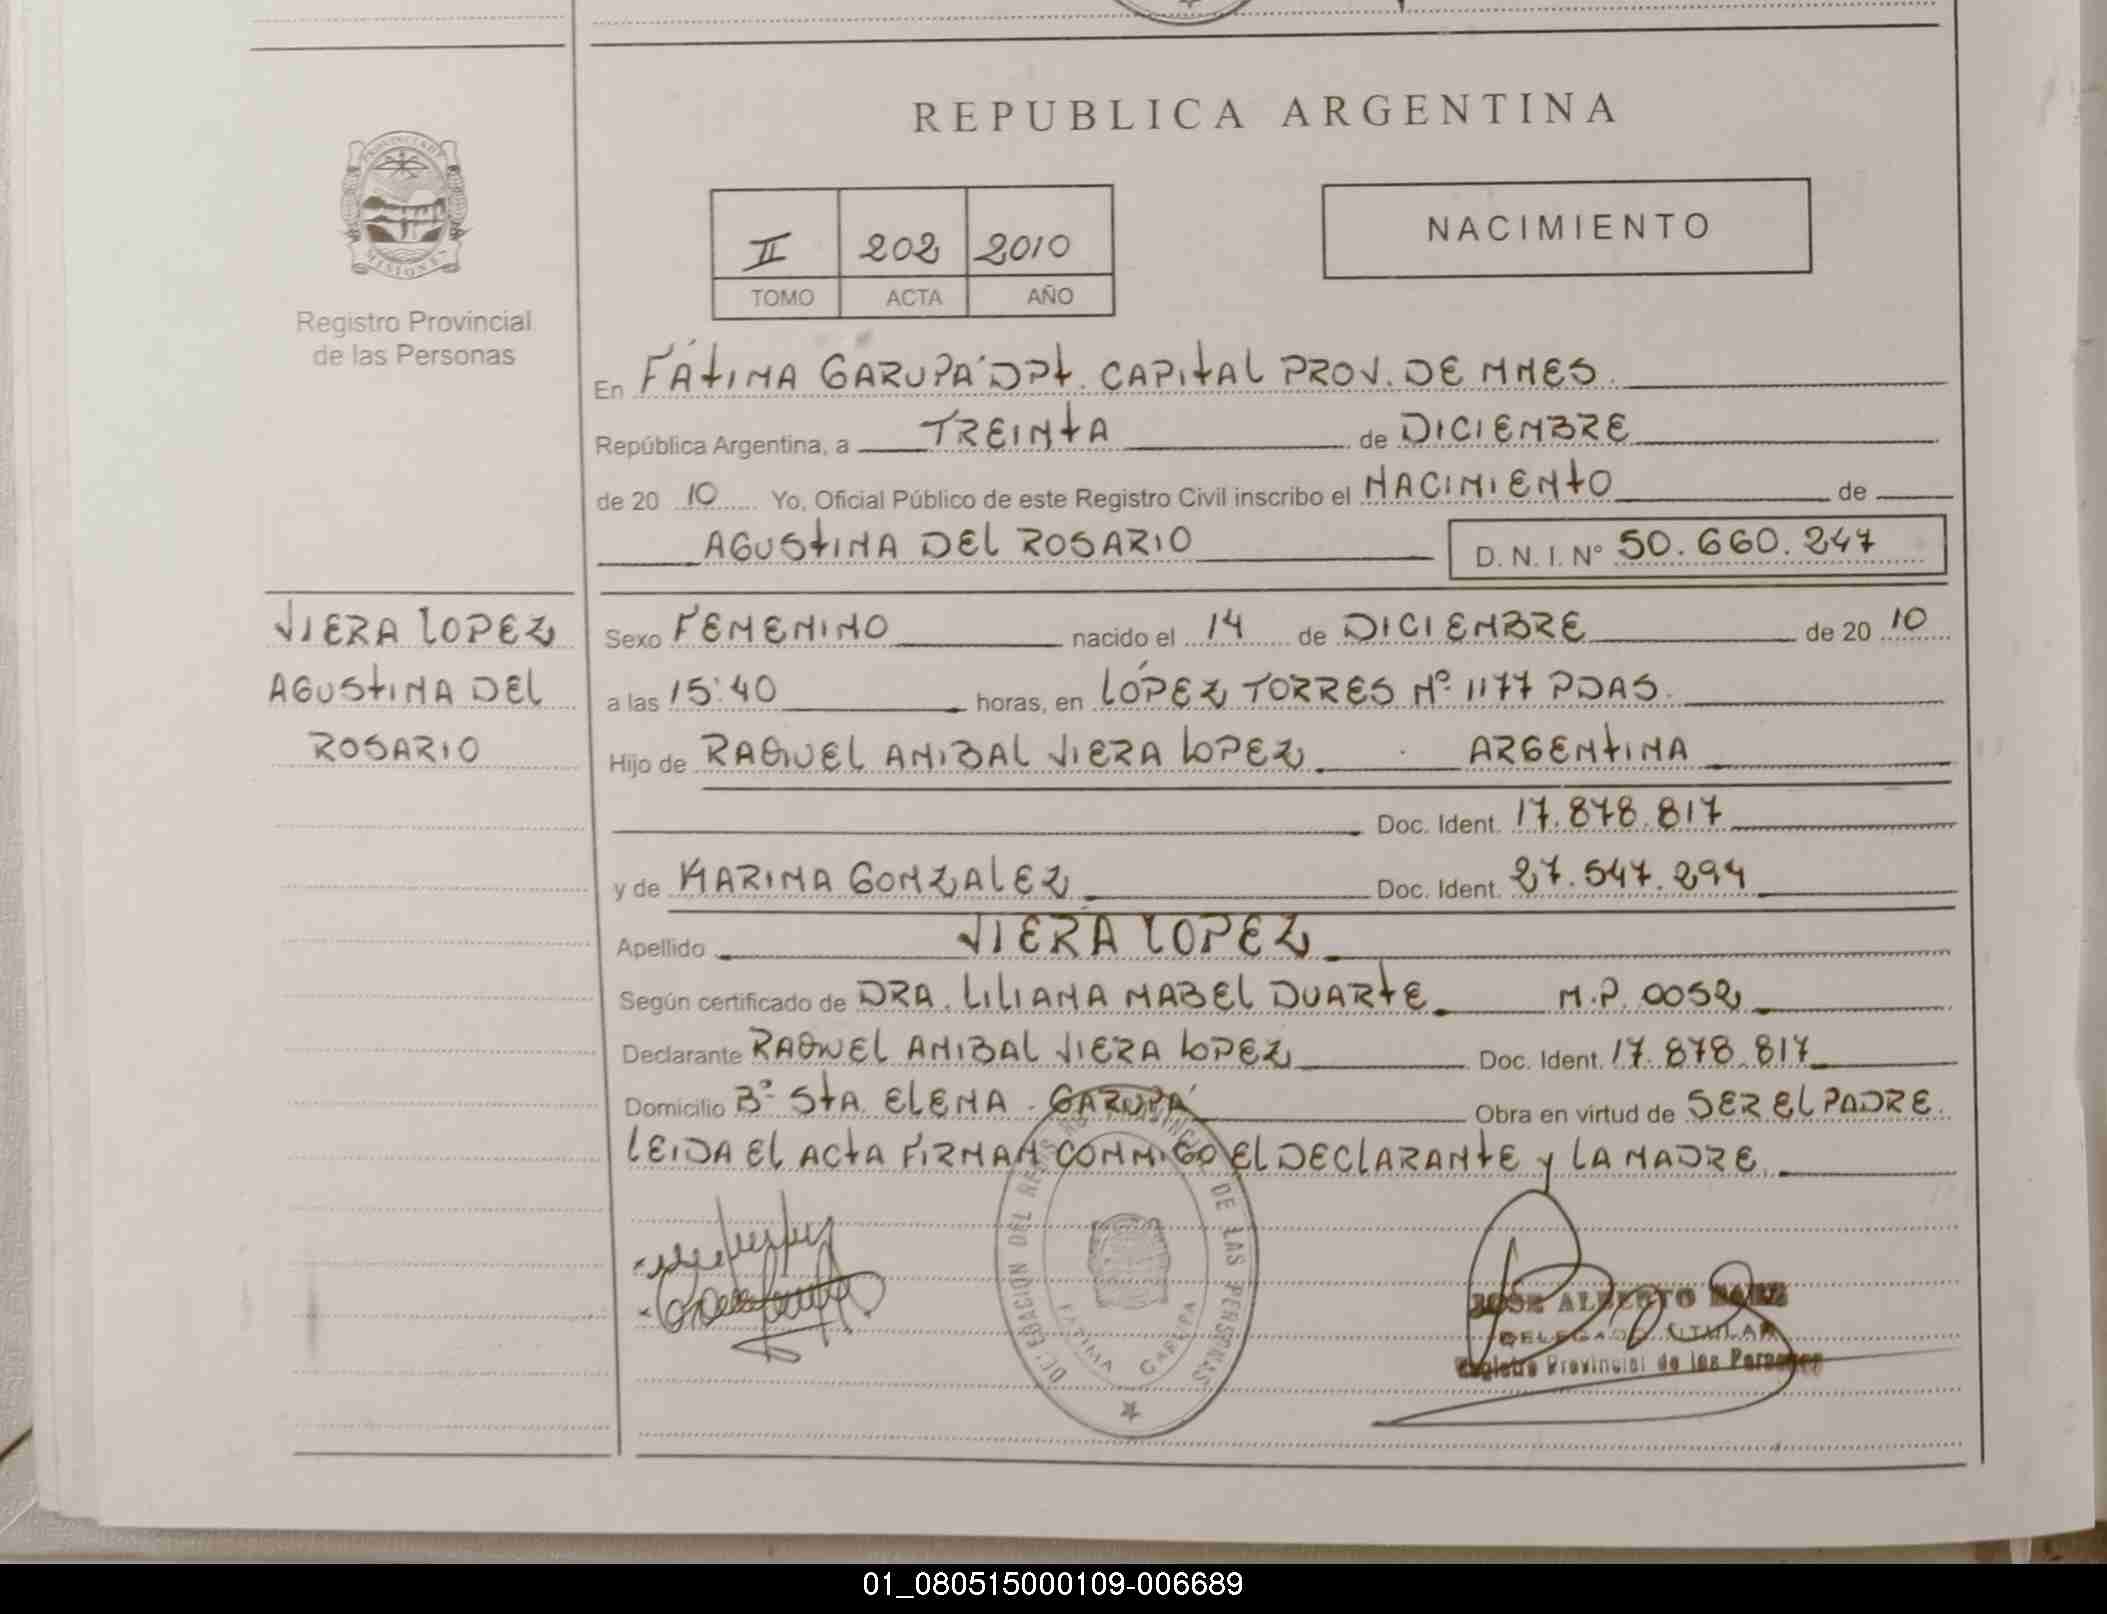 REPUBLICA ARGENTINA
PROVINCIA DE
MISIONES
Registro Provincial
de las Personas
II 202 2010
TOMO ACTA AÑO
NACIMIENTO
En FÁTIMA GARUPÁ DPT. CAPITAL PROV. DE MNES.
República Argentina, a TREINTA de DICIEMBRE
de 20 10 Yo, Oficial Público de este Registro Civil inscribo el NACIMIENTO de
AGUSTINA DEL ROSARIO D. N. I. N° 50.660.247
VIERA LOPEZ
AGUSTINA DEL
ROSARIO
Sexo FEMENINO nacido el 14 de DICIEMBRE de 20 10
a las 15:40 horas, en LÓPEZ TORRES Nº 1177 PDAS.
Hijo de RAQUEL ANIBAL VIERA LOPEZ ARGENTINA
Doc. Ident. 17.878.817
y de KARINA GONZALEZ Doc. Ident. 27.547.294
Apellido VIERA LOPEZ
Según certificado de DRA. LILIANA MABEL DUARTE M.P. 0052
Declarante RAQUEL ANIBAL VIERA LOPEZ Doc. Ident. 17.878.817
Domicilio Bº STA. ELENA - GARUPÁ Obra en virtud de SER EL PADRE.
LEIDA EL ACTA FIRMAN CONMIGO EL DECLARANTE Y LA MADRE.
DELEGACIÓN DEL DE LAS PERSONAS
FATIMA GARUPA
JOSE ALBERTO
DELEGADO TITULAR
Registro Provincial de las Personas
01_080515000109-006689